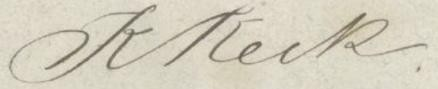 K Keck.